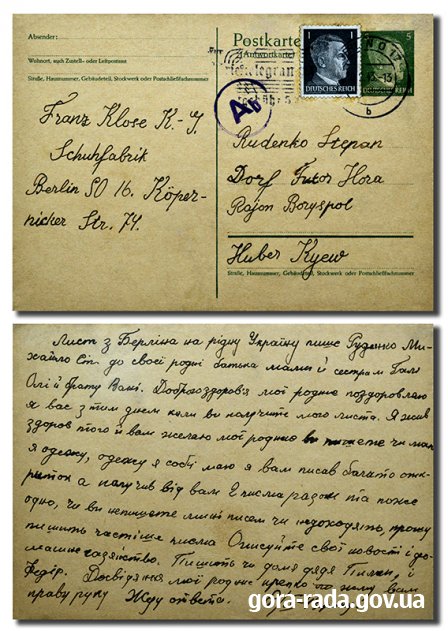 Absender:
Wohnort, auch Zustell- oder Leitpostamt
Straße, Hausnummer, Gebäudeteil, Stockwerk oder Postschließfachnummer
Franz Klose K.-G.
Schuhfabrik
Berlin SO 16. Köper-
nicker Str. 74.
Postkarte
Antwortkarte
1
1
DEUTSCHES REICH
5
DEUTSCHES REICH
b
Rudenko Stepan
Dorf Futor Hora
Rajon Boryspol
Huber Kyew
Straße, Hausnummer, Gebäudeteil, Stockwerk oder Postschließfachnummer
Лист з Берліна на рідну Україну пише Руденко Ми-
хайло Ст. до своєї родні батька мами й сестрам Галі
Олі й брату Вані. Доброго здоровʼя мої родние поздоровляю
я вас з тим днем коли ви получите мого листа. Я жив
здоров того й вам желаю мої родние ви пишете чи маю
я одежу, одежу я собі маю я вам писав багато отк-
риток а получив від вам 2 писма разом та поже
одно, чи ви непишете мині писем чи недоходять, прошу
пишить частіше писма Описуйте свої новості і до-
машне хазяйство. Пишить чи дома дядя і
Федір. Досвідання мої родние крепко жму вам
праву руку Жду ответа.
gora-rada.gov.ua